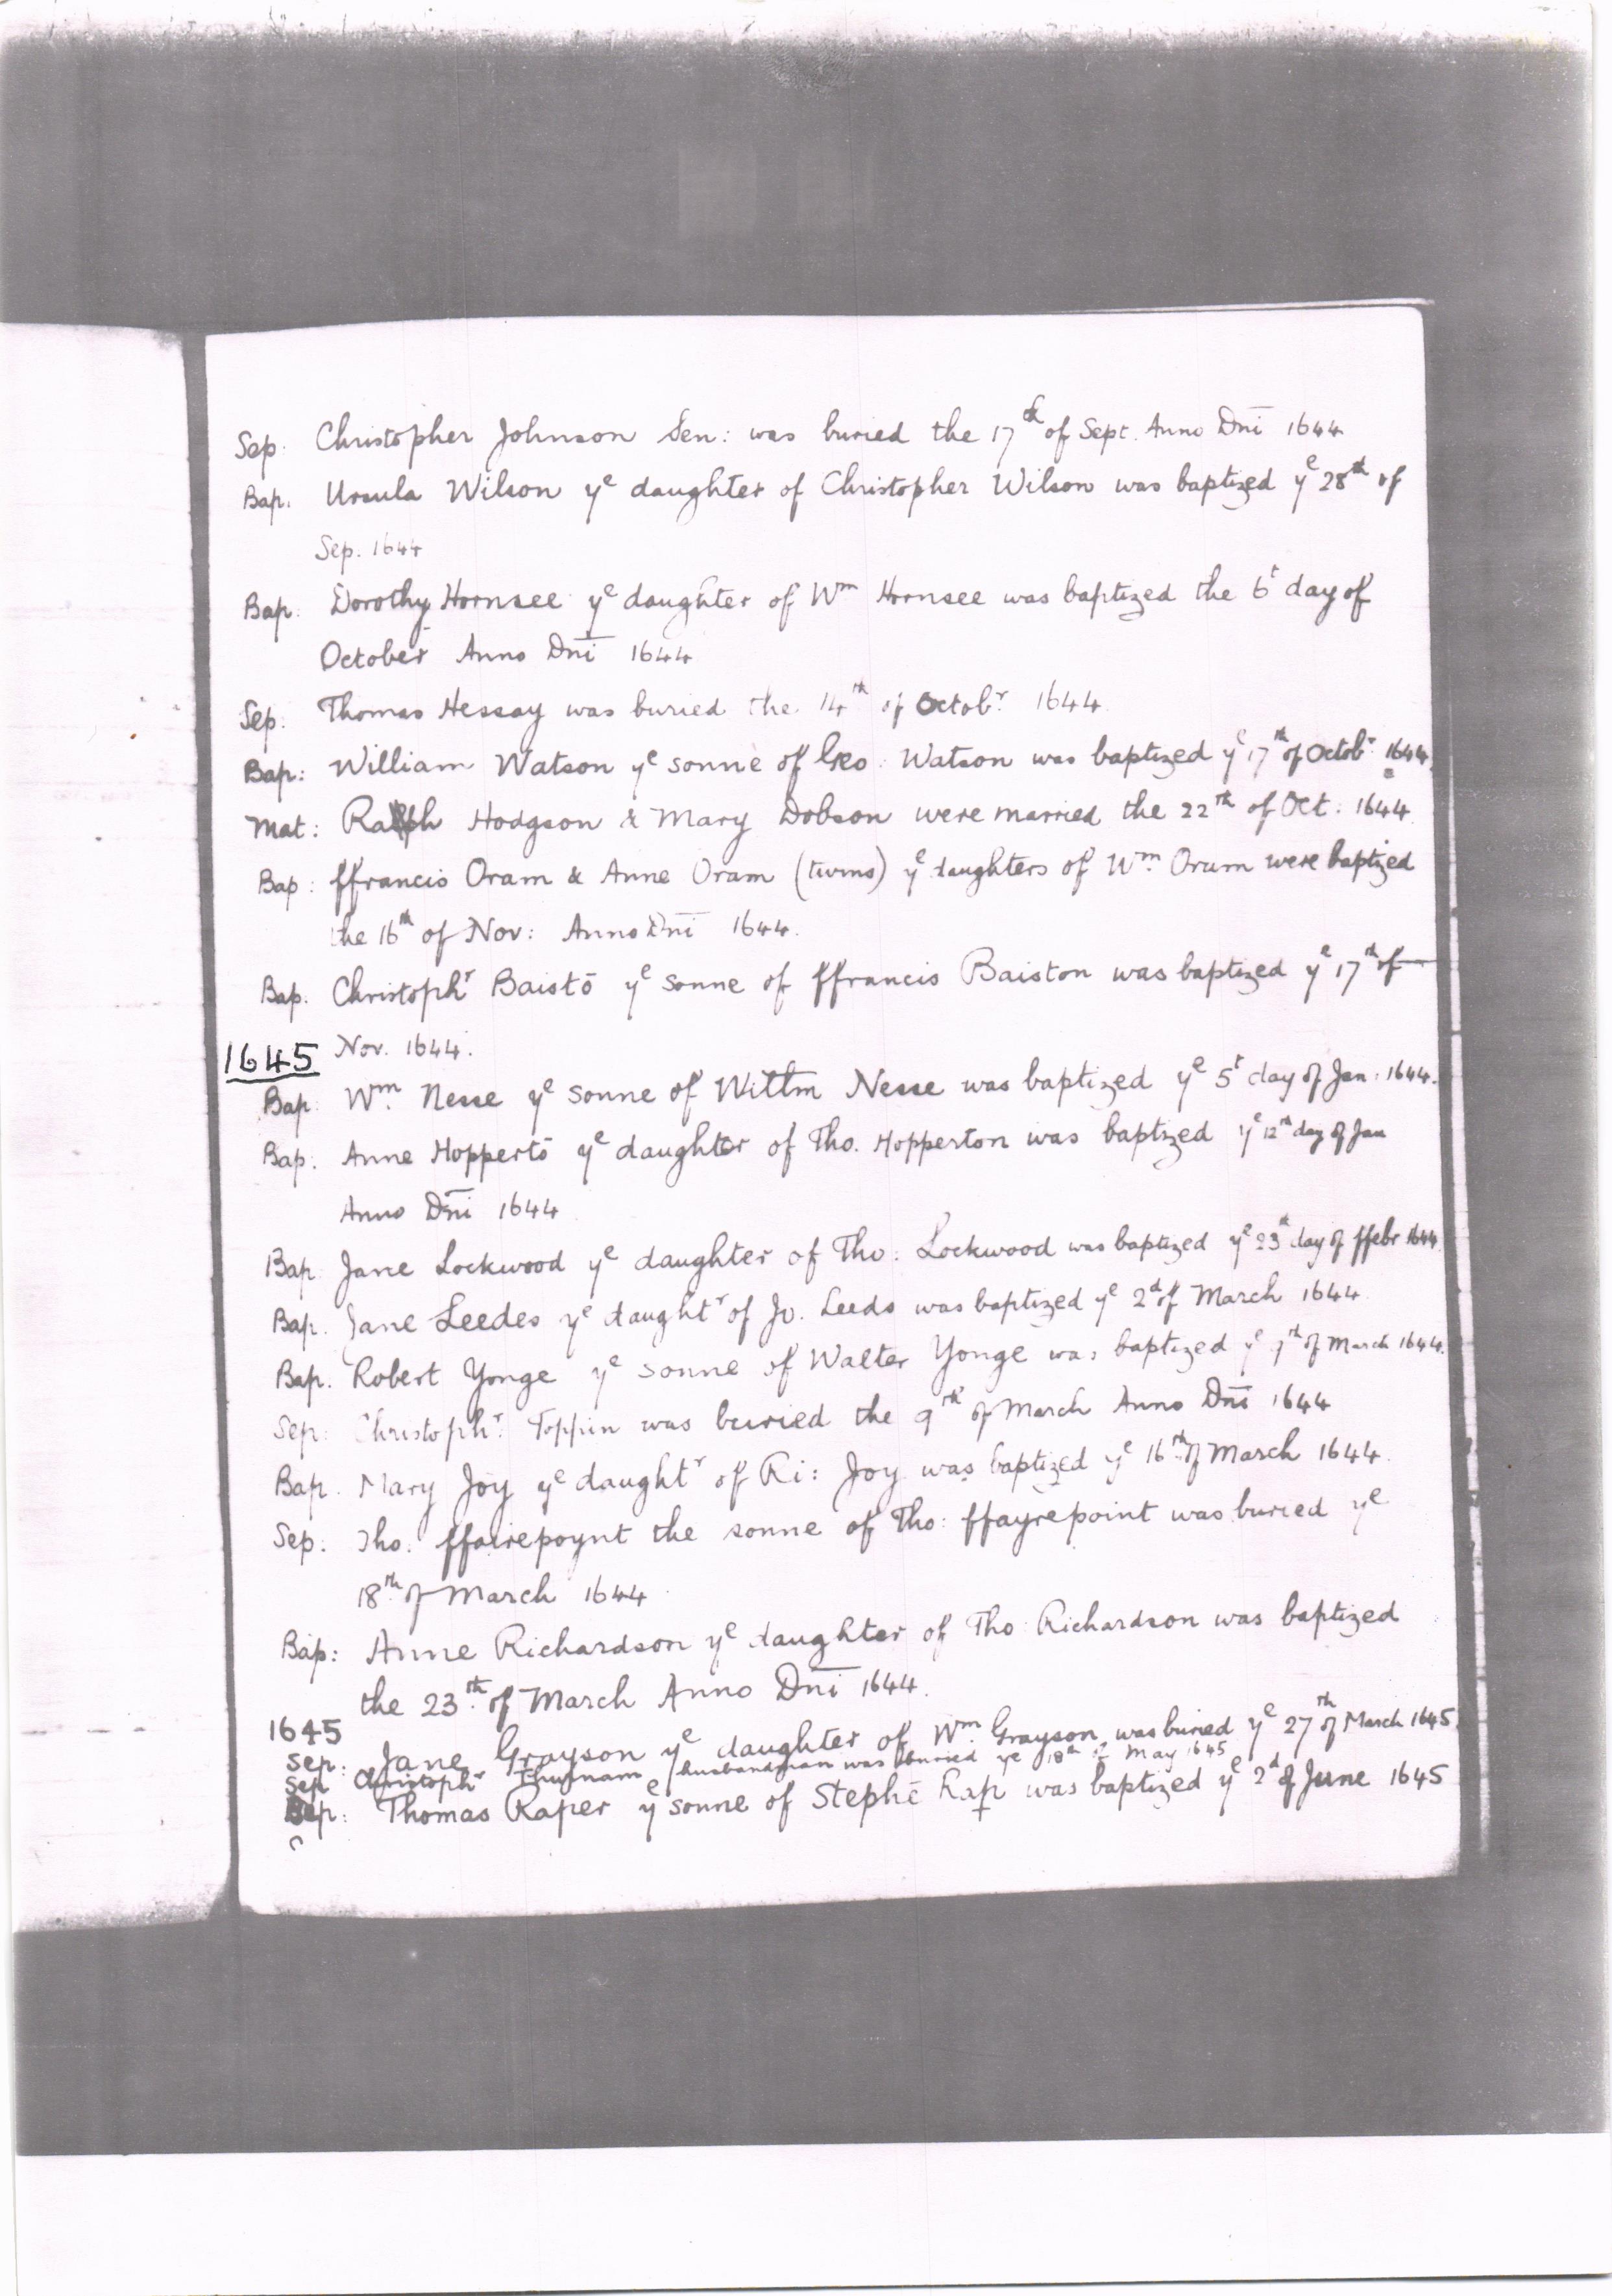 Sep. Christopher Johnson Sen: was buried the 17th of Sept. Anno Dñi 1644
Bap. Ursula Wilson ye daughter of Christopher Wilson was baptized ye 28th of
Sep. 1644
Bap. Dorothy Hornsee ye daughter of Wm Hornsee was baptized the 6t day of
October Anno Dñi 1644
Sep. Thomas Hessay was buried the 14th of Octobr 1644
Bap: William Watson ye sonne of Geo. Watson was baptized ye 17th of Octobr 1644
Mat: Ralph Hodgson & Mary Dobson were married the 22th of Oct: 1644
Bap: ffrancis Oram & Anne Oram (twins) ye daughters of Wm Orum were baptized
the 16th of Nov: Anno Dñi 1644.
Bap. Christophr Baistō ye sonne of ffrancis Baiston was baptized ye 17th of
1645 Nov. 1644.
Bap. Wm Nesse ye sonne of Willm Nesse was baptized ye 5t day of Jan. 1644.
Bap. Anne Hoppertō ye daughter of Tho. Hopperton was baptized ye 12th day of Jan
Anno Dñi 1644
Bap. Jane Lockwood ye daughter of Tho: Lockwood was baptized ye 23d day of ffebr 1644
Bap. Jane Leedes ye daughtr of Jo. Leeds was baptized ye 2d of March 1644
Bap. Robert Yonge ye sonne of Walter Yonge was baptized ye of March 1644.
Sep. Christophr Toppin was buried the 9th of March Anno Dñi 1644
Bap. Mary Joy ye daughtr of Ri: Joy was baptized ye 16th of March 1644.
Sep: Tho. ffairepoynt the sonne of Tho: ffayrepoint was buried ye
18th of March 1644
Bap: Anne Richardson ye daughter of Tho Richardson was baptized
the 23th of March Anno Dñi 1644.
1645
Sep: Jane Grayson ye daughter of Wm Grayson was buried ye 27th of March 1645.
Sep Christophr husbandman was buried ye 18th of May 1645
Bap: Thomas Raper ye sonne of Stephē Rap was baptized ye 2d of June 1645